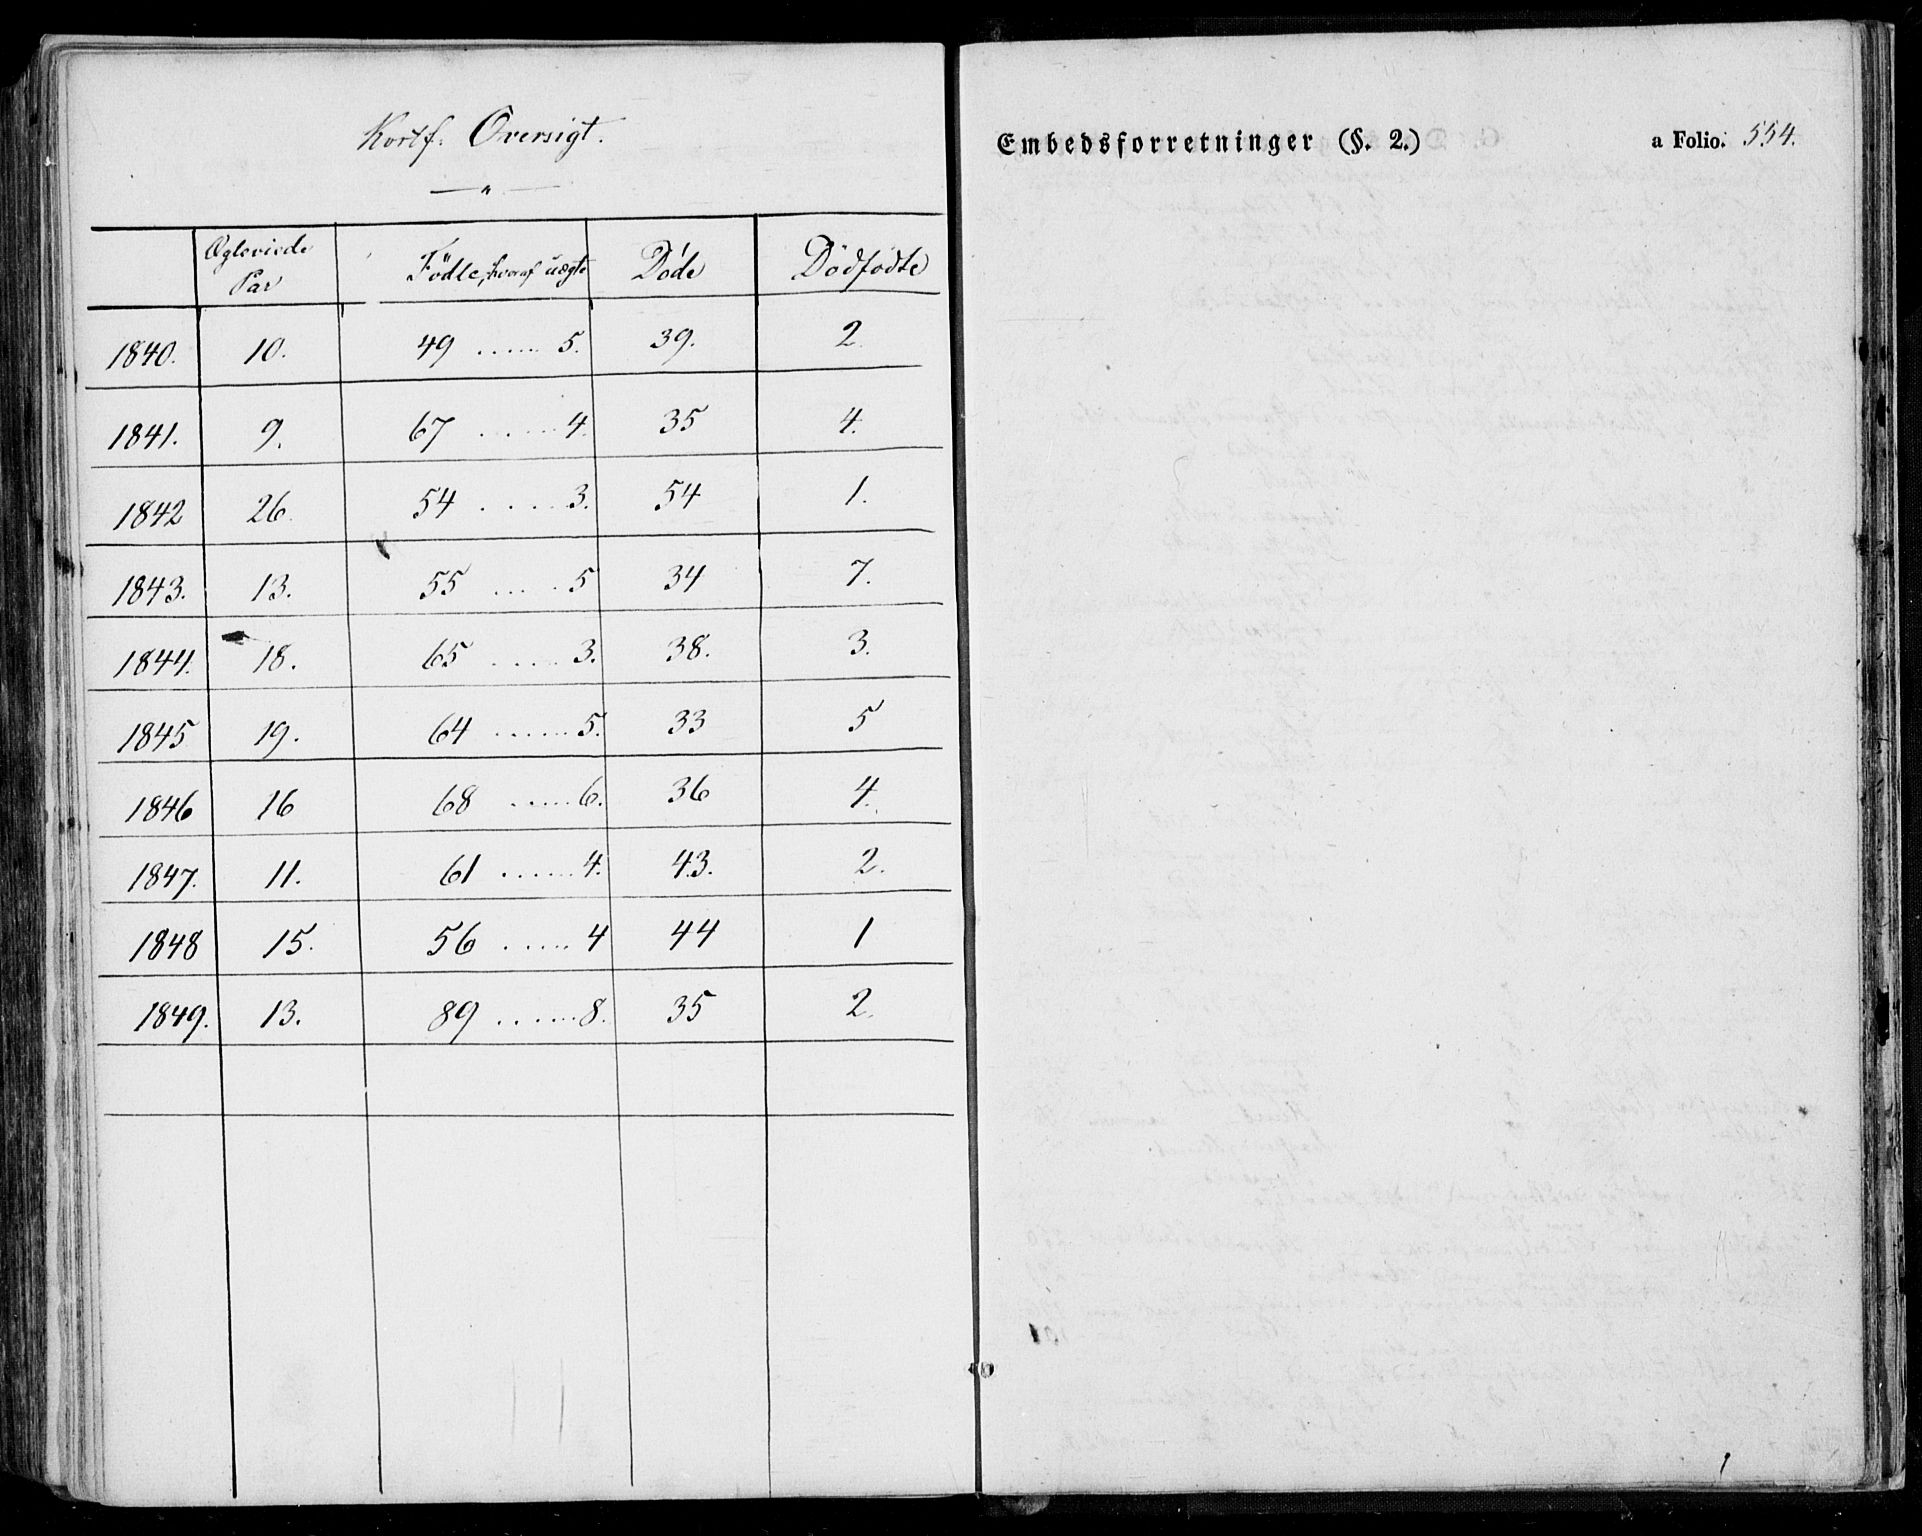 Kortf. Oversigt.
Ægteviede Par | Födte, hvoraf uægte | Døde | Dödfødte
1840. | 10. | 49 ...... 5. | 39. | 2
1841. | 9. | 67 ...... 4. | 35 | 4.
1842 | 26. | 54 ...... 3. | 54 | 1.
1843. | 13. | 55 ...... 5 | 34 | 7.
1844. | 18. | 65 ...... 3. | 38. | 3.
1845 | 19. | 64 ...... 5. | 33 | 5
1846 | 16 | 68 ...... 6. | 36 | 4.
1847. | 11. | 61 ...... 4. | 43. | 2.
1848 | 15. | 56 ...... 4 | 44 | 1
1849. | 13. | 89 ...... 8. | 35 | 2.
Embedsforretninger (§. 2.) a Folio. 554.